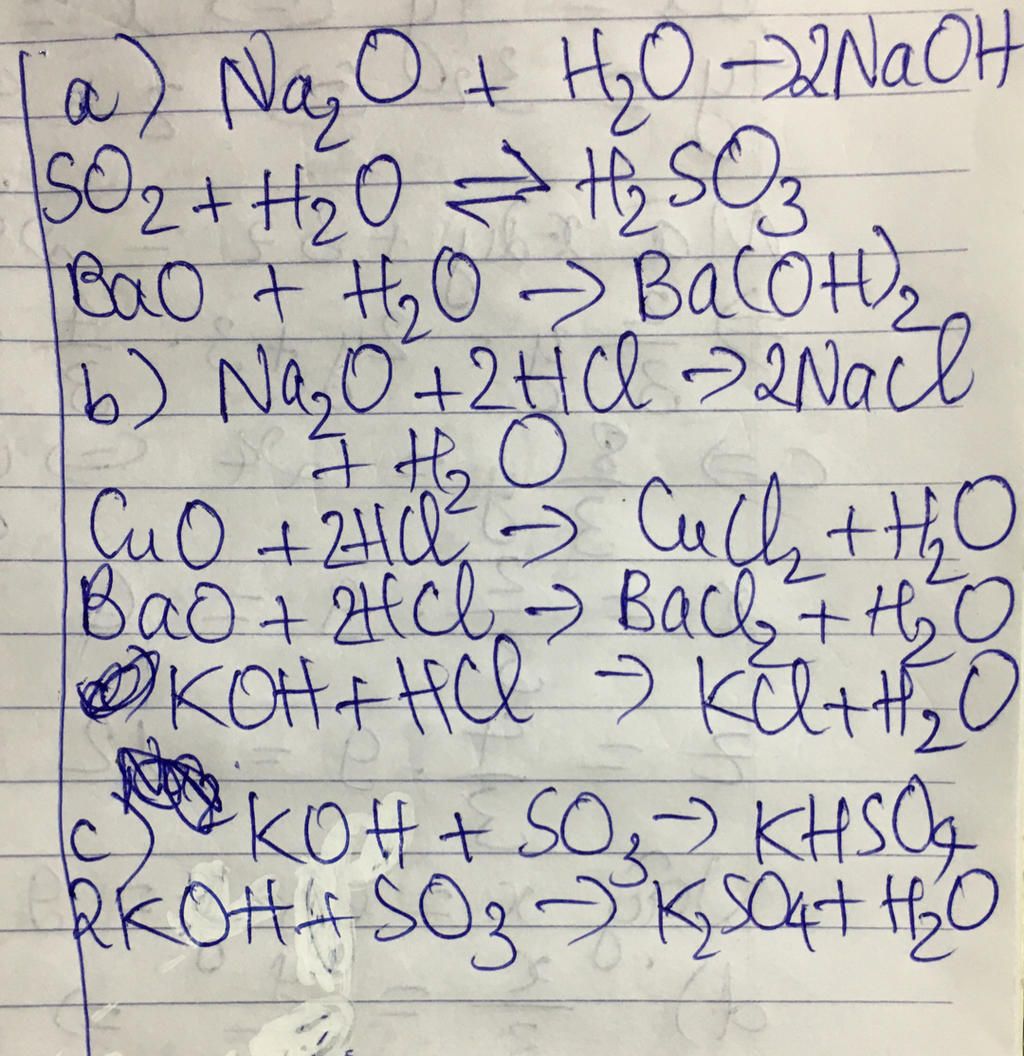 a) Na₂O + H₂O → 2NaOH
SO₂ + H₂O ⇌ H₂SO₃
BaO + H₂O → Ba(OH)₂
b) Na₂O + 2HCl → 2NaCl
+ H₂O
CuO + 2HCl → CuCl₂ + H₂O
BaO + 2HCl → BaCl₂ + H₂O
KOH + HCl → KCl + H₂O
c) KOH + SO₃ → KHSO₄
2KOH + SO₃ → K₂SO₄ + H₂O